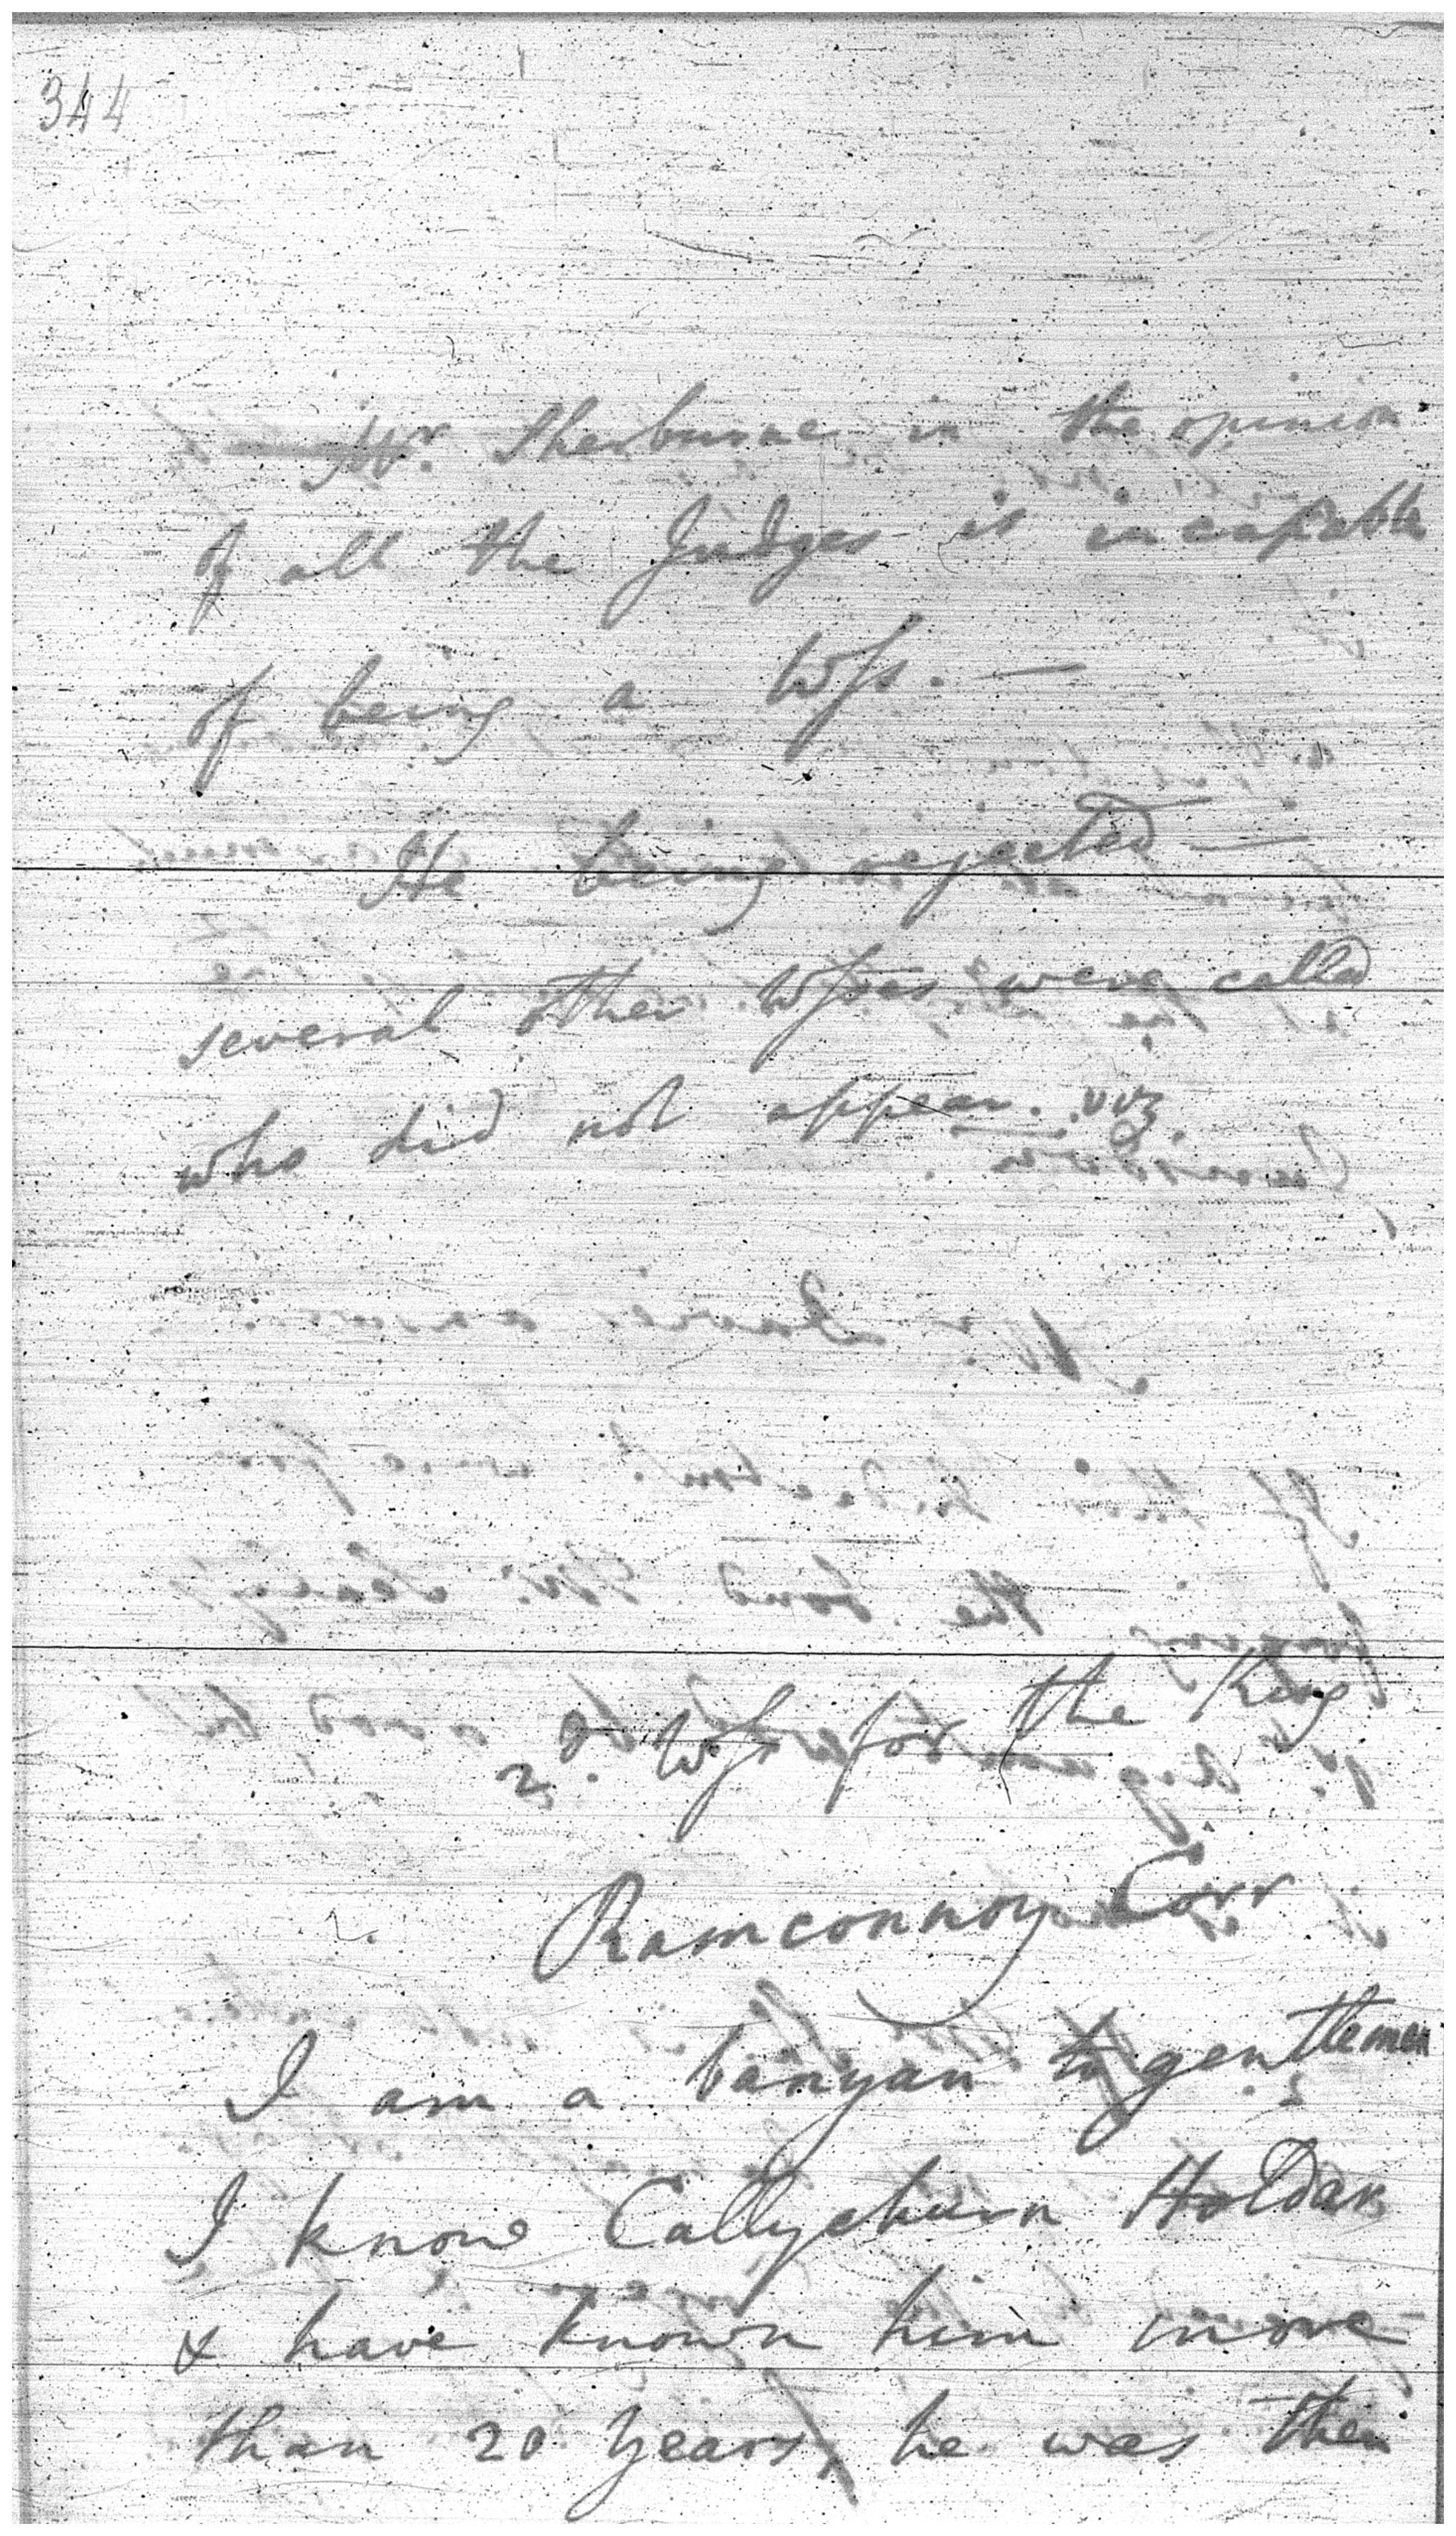 344
Mr. Sherburne in the opinion
of all the Judges is incapable
of being a Wss. —
He being rejected —
several other Wsses were called
who did not appear. viz.
2d. Wss for the King
Ramconnoy Corr
I am a banyan to gentlemen
I know Callychurn Holdar
& have known him more
than 20 Years, he was then